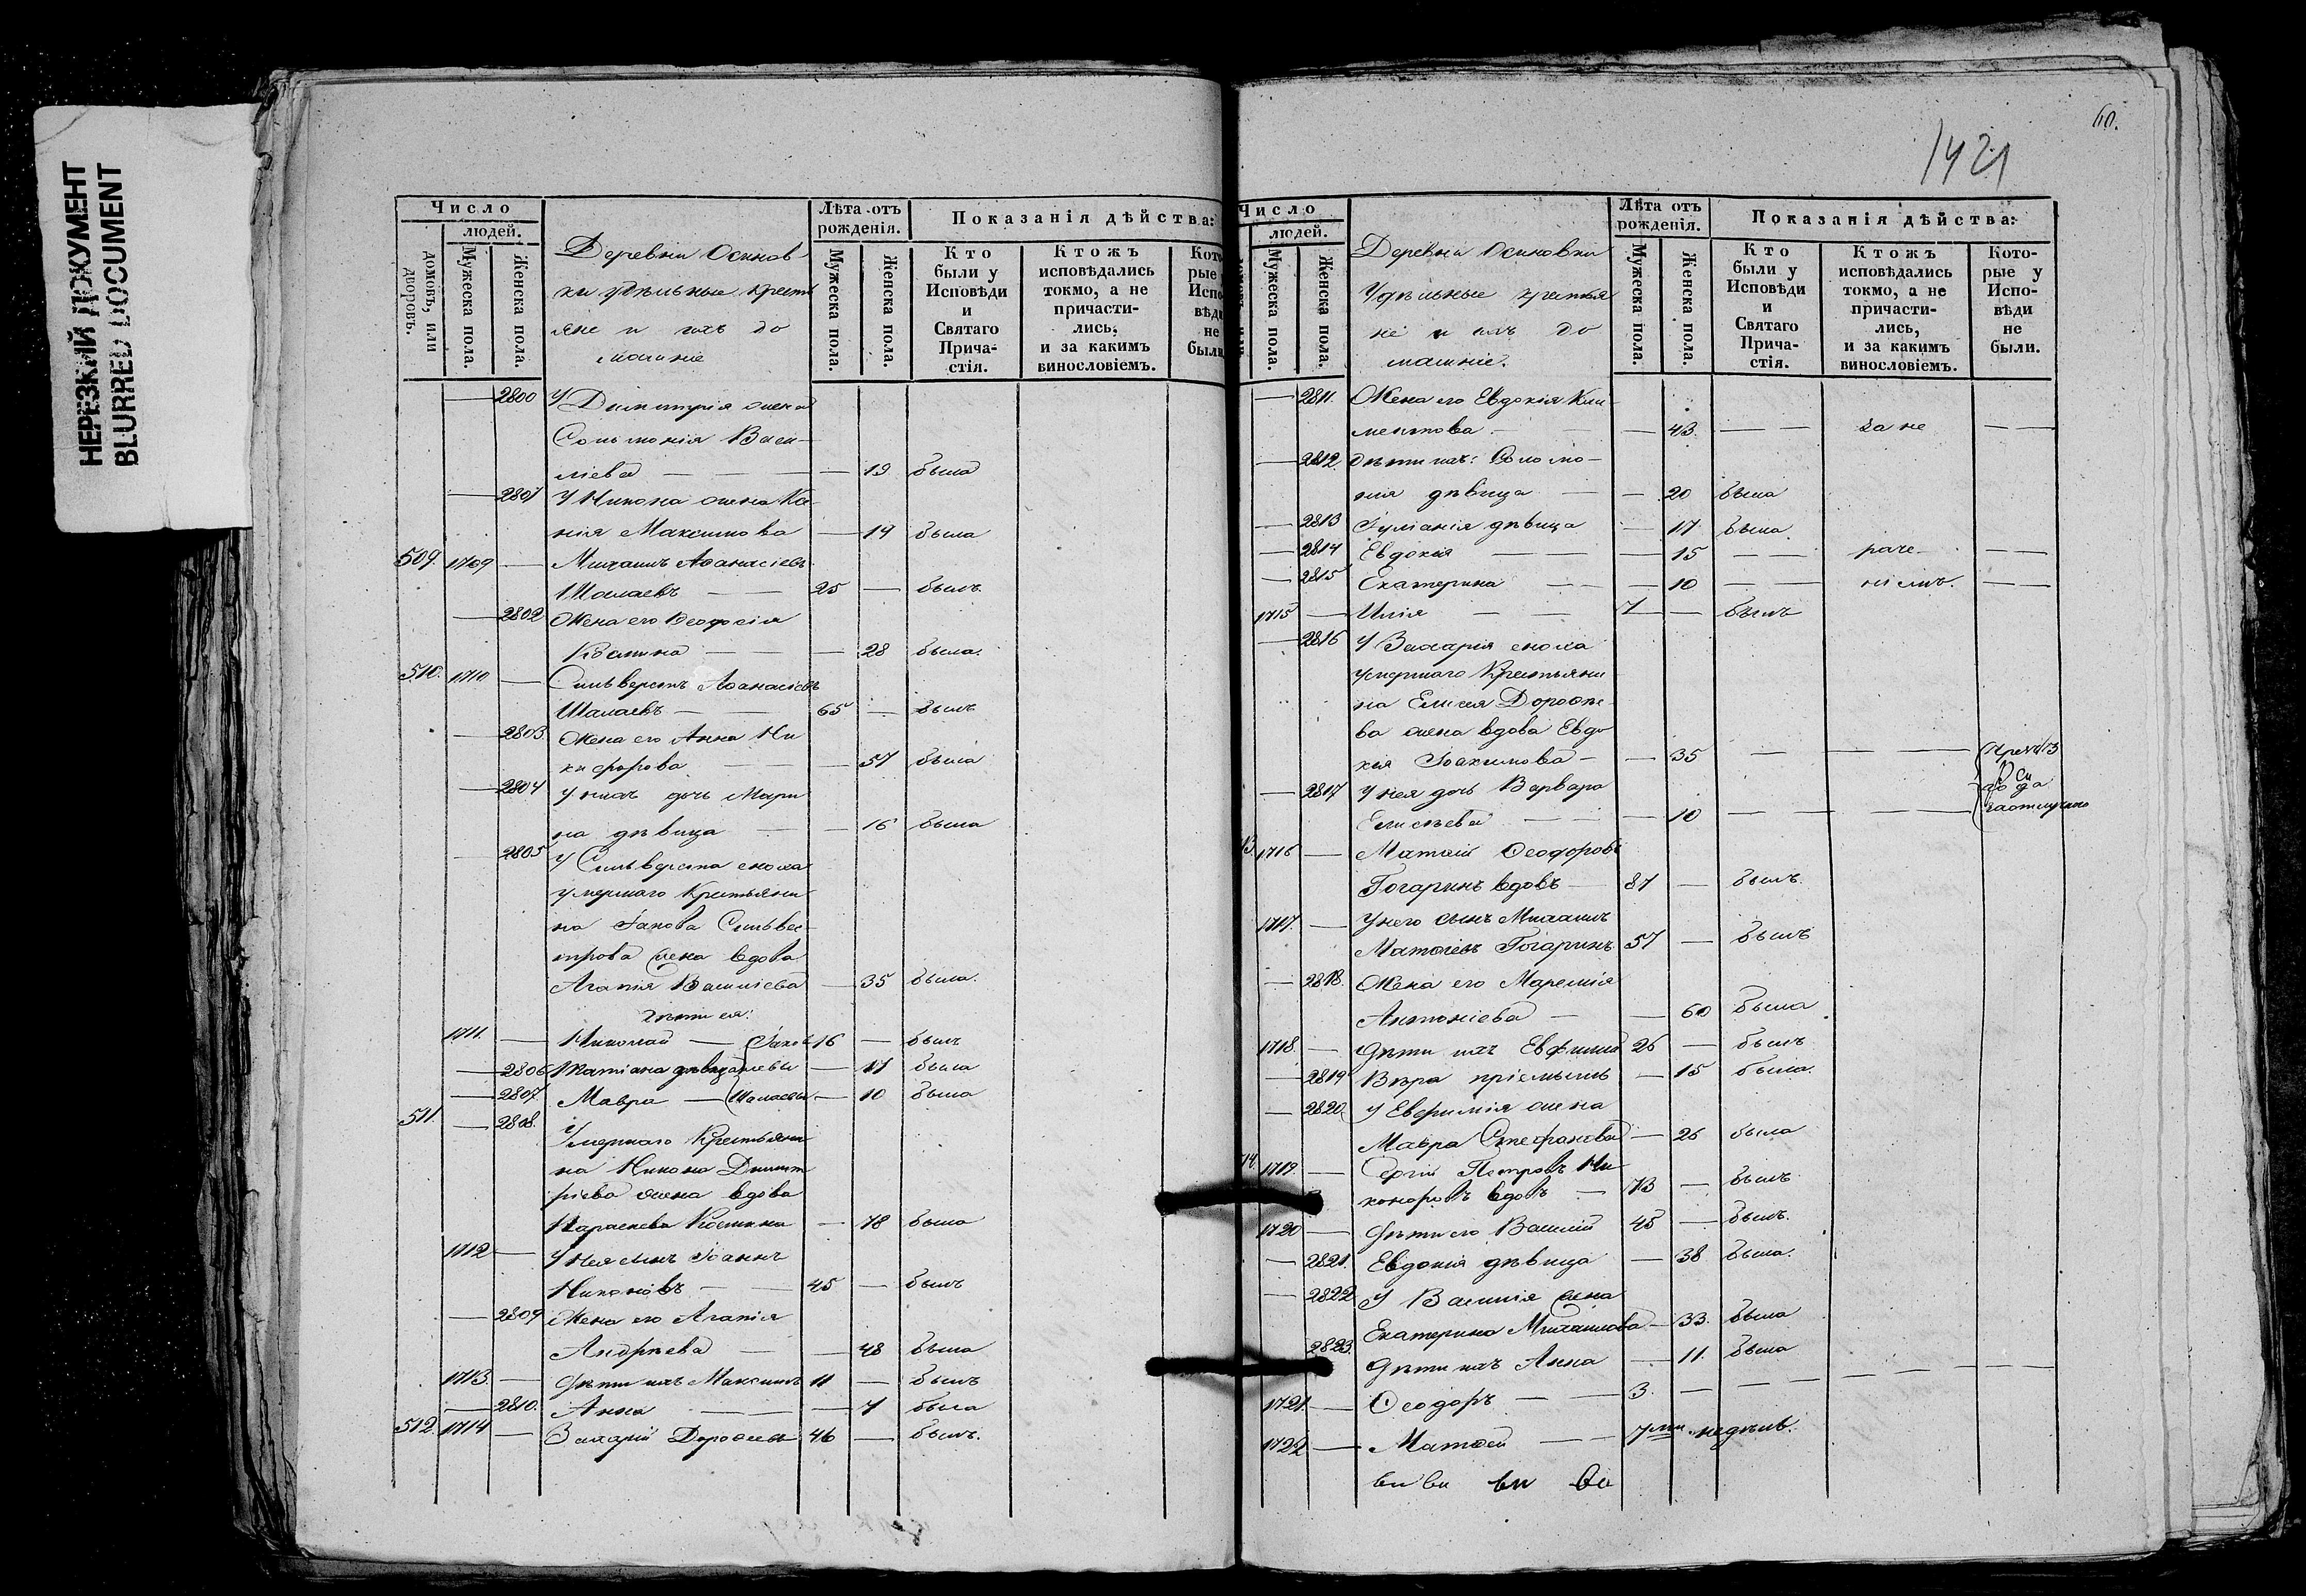 НЕРЕЗКИЙ ДОКУМЕНТ
BLURRED DOCUMENT
Число
людей.
домовъ, или дворовъ.
Мужеска пола.
Женска пола.
Деревни Осинов
ки удѣльные крестья
яне и ихъ до
машніе
Лѣта отъ рожденія.
Мужеска пола.
Женска пола.
Показанія дѣйства:
Кто были у Исповѣди и Святаго Прича-стія.
Ктожъ исповѣдались токмо, а не причасти-лись, и за какимъ винословіемъ.
2800 У Димитрія жена
Соломонія Васи-
ліева — — 19 была
2801 У Никона жена Ксе
нія Максимова — 19 была
509. 1709 — Михаилъ Аѳанасіевъ
Шалаевъ — 25 — былъ
2802 Жена его Ѳеодосія
Козмина — — 28 была.
510. 1710 — Сильверстъ Аѳанасіевъ
Шалаевъ — 65 — былъ
2803. Жена его Анна Ни
кифорова — — 57 была
2804 У нихъ дочь Мари
на дѣвица — — 16 была
2805 У Сильверста сноха
умершаго Крестьяни
на Іакова Сильвес
трова жена вдова
Агапія Василіева — 35 была.
дѣти ея:
1711. — Николай — Іаков 16 — былъ
2806 Татіана дѣвица левы — 11 была
2807. Мавра — Шалаевы — 10 была
511. — 2808. Умершаго Крестьяни
на Никона Димит
ріева жена вдова
Параскева Козмина — 78 была
1712 — У нея сынъ Іоаннъ
Никоновъ — 45 — былъ
2809 Жена его Агапія
Андрѣева — — 48 была
1713. — Дѣти ихъ Максимъ 11 — былъ
2810. Анна — — 7 была
512. 1714 — Захарій Дороѳеевъ 46 — былъ.
60.
1421
Число
людей.
Мужеска пола.
Женска пола.
Деревни Осиновки
Удѣльные крестья
не и ихъ до
машніе.
Лѣта отъ рожденія.
Мужеска пола.
Женска пола.
Показанія дѣйства:
Кто были у Исповѣди и Святаго Прича-стія.
Ктожъ исповѣдались токмо, а не причасти-лись, и за какимъ винословіемъ.
Кото-рые у Испо-вѣди не были.
2811. Жена его Евдокія Кли
ментова — — 43. — — за не — —
2812. Дѣти ихъ: Соломо-
нія дѣвица — — 20 была
2813 Іуліанія дѣвица — 17 была.
2814 Евдокія — — 15 — — раче- — —
2815 Екатерина — — 10 — — ніемъ. — —
1715 — Илія — — 7 — былъ
2816 У Захарія сноха
умершаго Крестьяни
на Елисея Дороѳее
ва жена вдова Евдо
кія Іоакимова — — 35 — — —
2817 У нея дочь Варвара
Елисѣева — — 10 — — —
года
заотлучкою
13. 1716 — Матѳій Ѳеодоровъ
Гогаринъ вдовъ — 87 — былъ.
1717. — У него сынъ Михаилъ
Матѳіевъ Гогаринъ 57 — былъ
2818. Жена его Маремія
Антоніева — — 60 была
1718. — Дѣти ихъ Евфимій 26 — былъ
2819 Вѣра пріемышъ — 15 была.
2820. У Евфимія жена
Мавра Стефанова — 26 была
14. 1719. — Сергій Петровъ Ни
каноровъ вдовъ — 73 — былъ
1720 — Дѣти его Василій 45 — былъ.
2821. Евдокія дѣвица — 38 была.
2822 У Василія жена
Екатерина Михаилова — 33. была
2823. Дѣти ихъ Анна — 11. была
1721. — Ѳеодоръ — — 3. — — — — —
1722 — Матѳей — — 7ми недѣль.